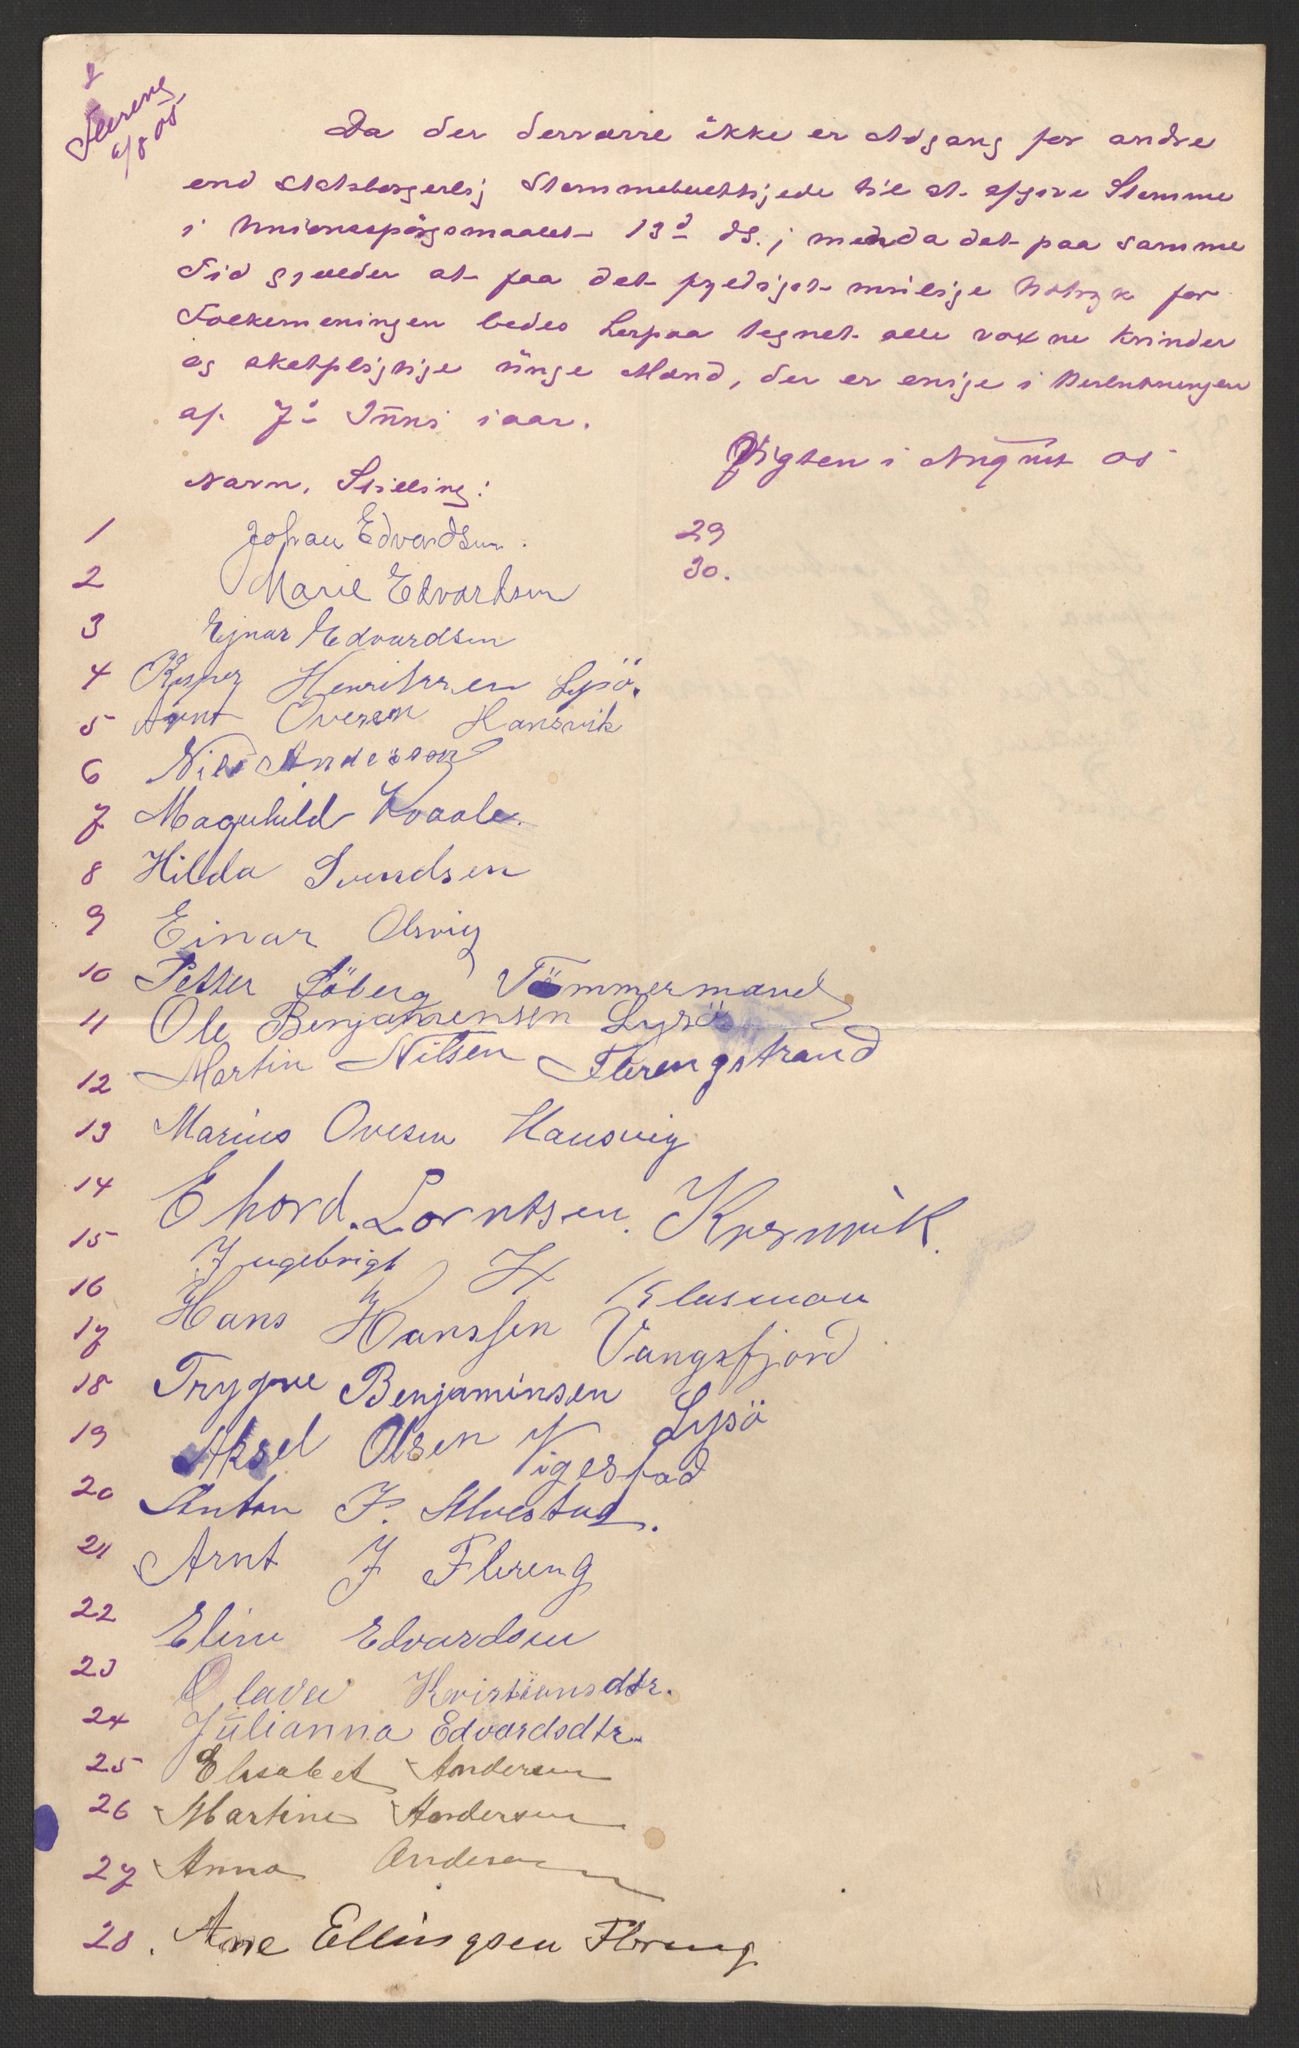 Flereng
6/8 05
Da der derværre ikke er Adgang for andre
end statsborgerlig Stemmeberettigede til at afgive Stemme
i Unionsspørgsmaalet 13d ds.; men da det paa samme
Tid gjælder at faa det fyldigst mulige Udtryk for
Folkemeningen bedes herpaa tegnet alle voxne kvinder
og skatpligtige unge Mænd, der er enige i Beslutningen
af 7de Juni iaar.
Vigten i August 05
Navn, Stilling:
1 Johan Edvardsen.
2 Marie Edvartsen
3 Ejnar Edvardsen
4 Henriksen Lysö.
5 Arnt Ovesen Hansvik
6 Nils Anderson
7 Magnhild Kvaale.
8 Hilda Svendsen
9 Einar Olsvig
10 Petter Söberg Tömmermand
11 Ole Benjamensen Lysö
12 Martin Nilsen Flerengstrand
13 Marius Ovesen Hansvig
14 Ehord. Lorntsen. Kvernvik.
15 Ingebrigt H
16 Hans Hanssen Vangsfjord
17
18 Trygve Benjaminsen Lysö
19 Aksel Olsen Vigestad
20 Anton J. Alvestad.
21 Arnt J Flereng
22 Eline Edvardsen
23 Olava Kristiansdtr.
24 Julianna Edvardsdtr.
25 Elisabet Andersen
26 Martine Andersen
27 Anna Andersen
28. Ane Ellingsen Flereng
29
30.